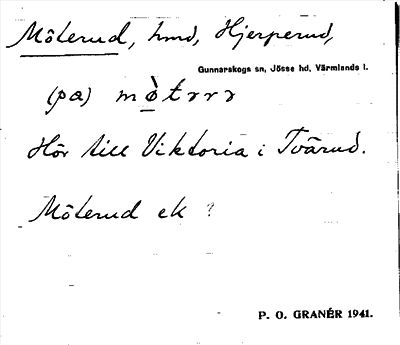 Möterud, hmd, Hjerperud,
Gunnarskogs sn, Jösse hd, Värmlands l.
(pa) mø̀tɤrɤ
Hör till Viktoria i Tvärud.
Möterud ek ?
P. O. GRANÉR 1941.